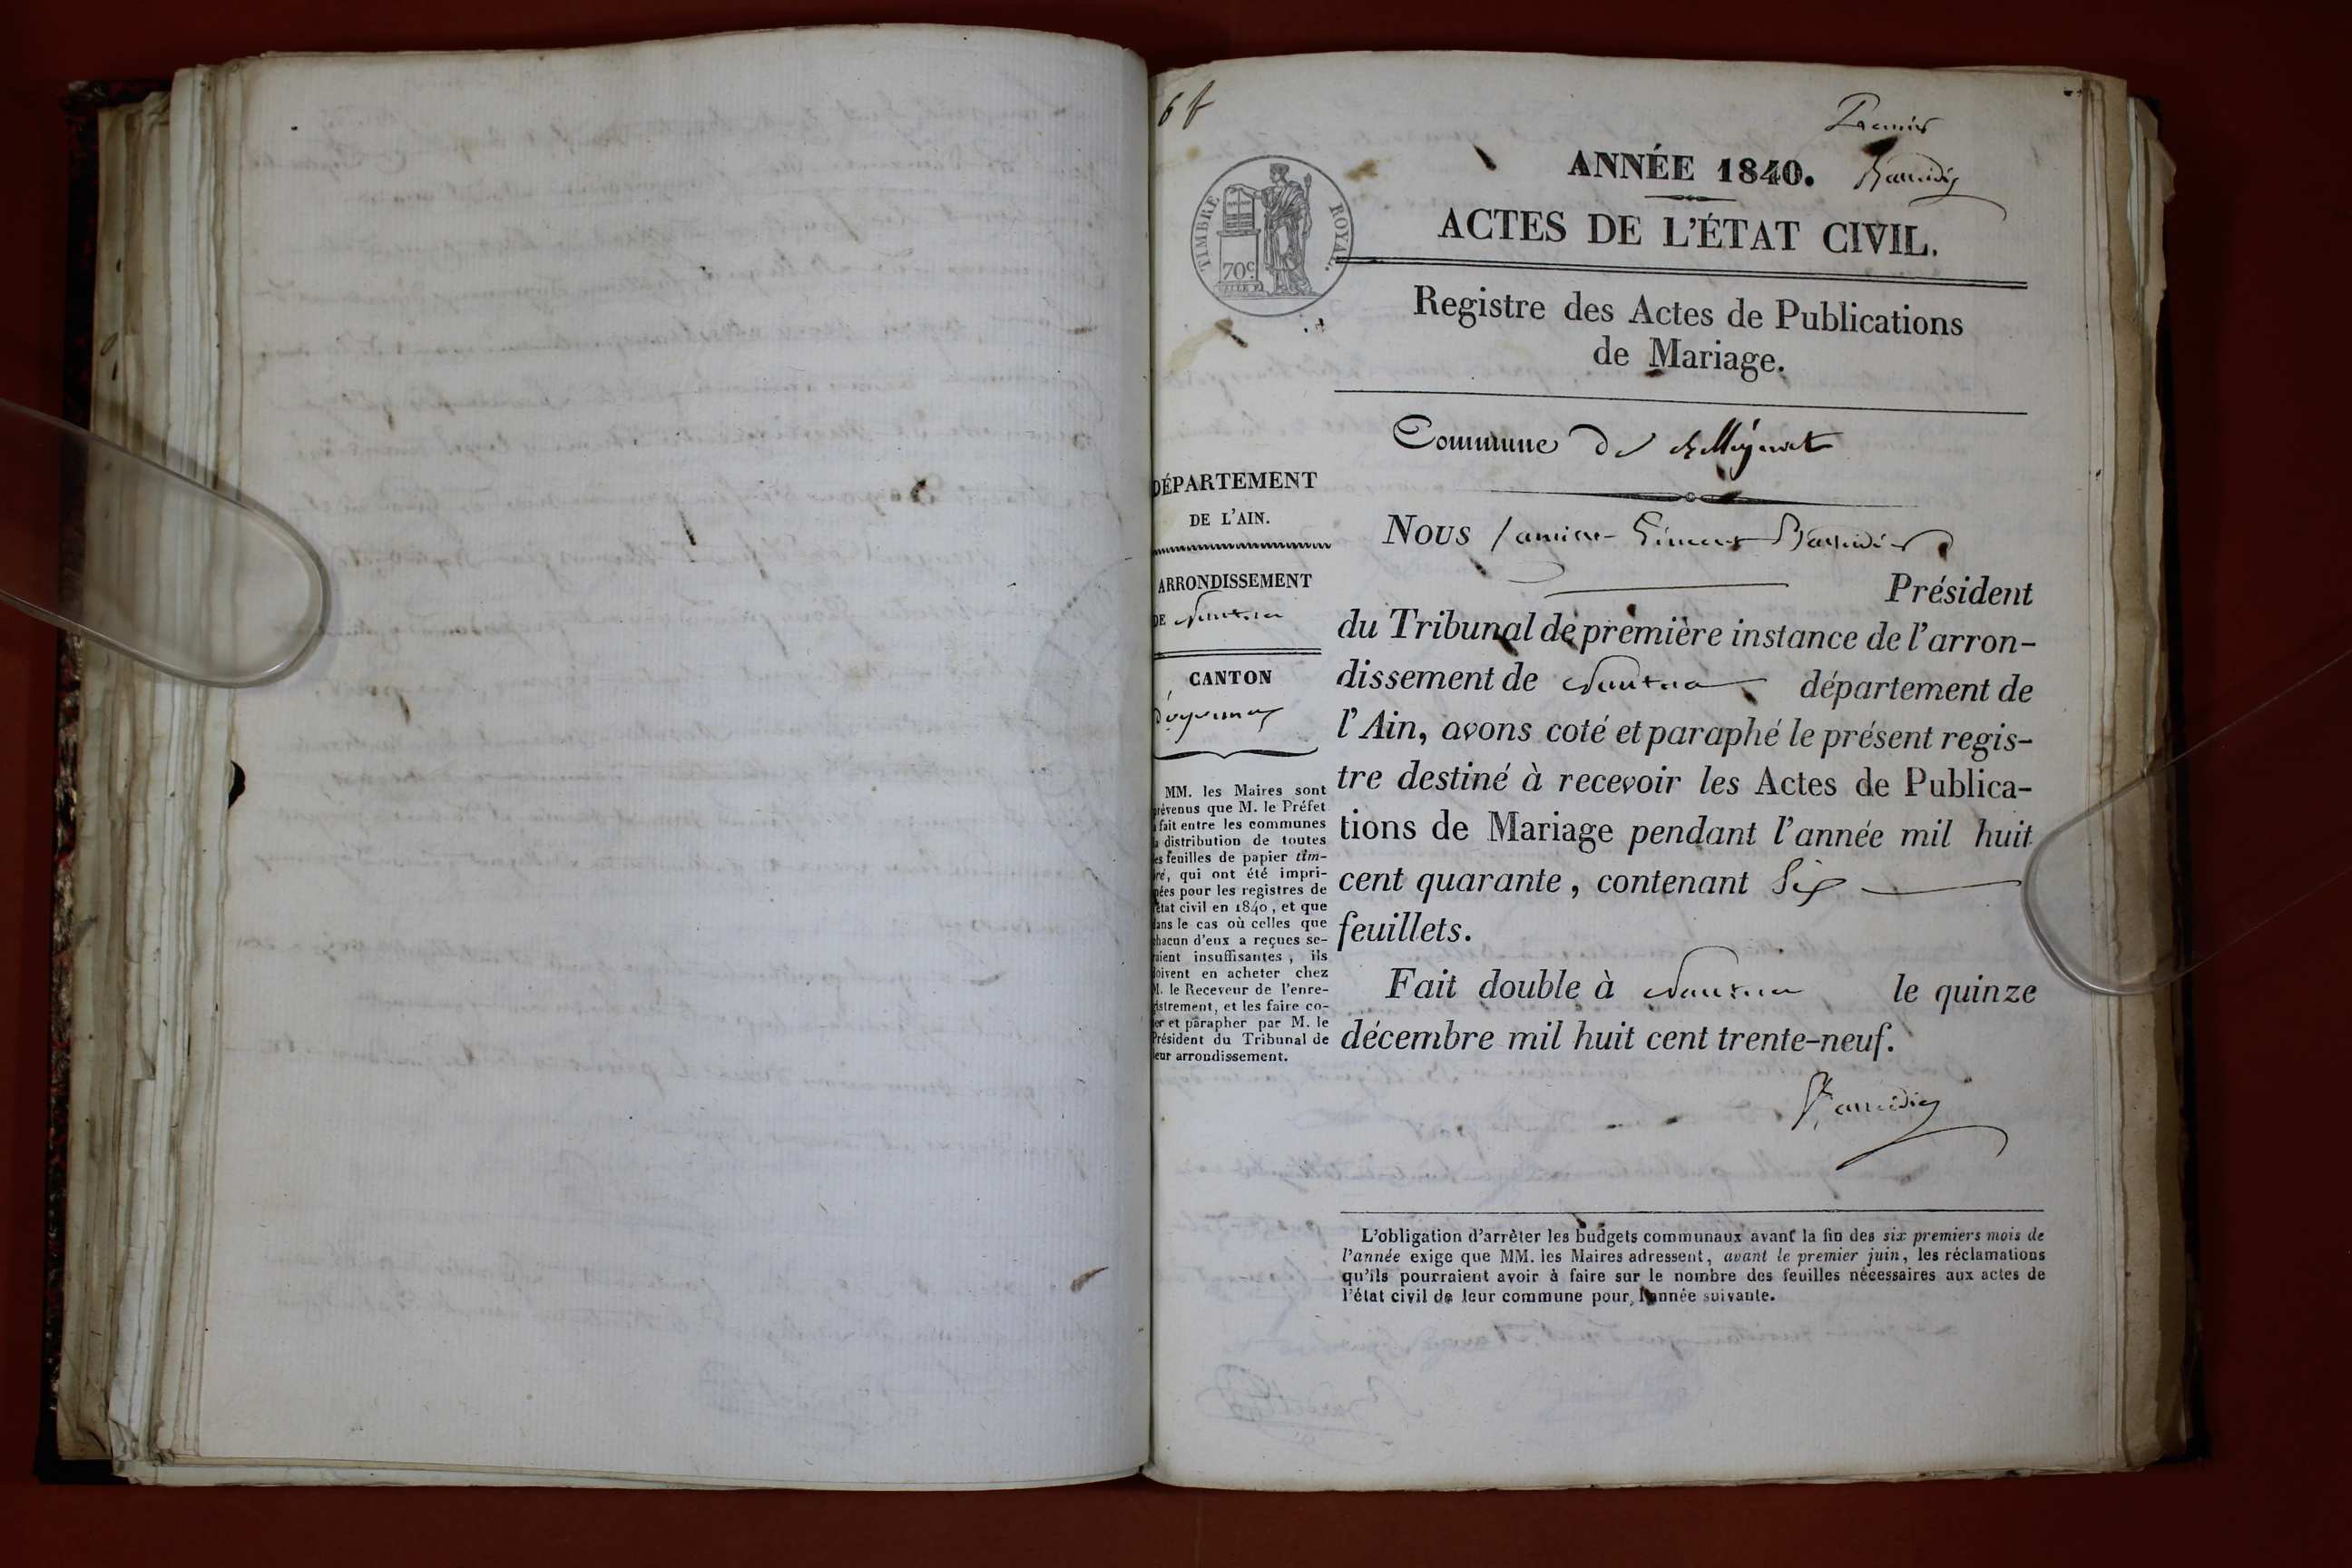 6 f
Premier
ANNÉE 1840.
ACTES DE L'ÉTAT CIVIL.
TIMBRE ROYAL.
70c
Registre des Actes de Publications
de Mariage.
Commune de
DÉPARTEMENT
DE L'AIN.
ARRONDISSEMENT
DE Nantua
CANTON
d'oyonnax
MM. les Maires sont
prévenus que M. le Préfet
a fait entre les communes
la distribution de toutes
les feuilles de papier tim-
bré, qui ont été impri-
mées pour les registres de
l'état civil en 1840, et que
dans le cas où celles que
chacun d'eux a reçues se-
raient insuffisantes, ils
doivent en acheter chez
M. le Receveur de l'enre-
gistrement, et les faire co-
ter et parapher par M. le
Président du Tribunal de
leur arrondissement.
Nous
Président
du Tribunal de première instance de l'arron-
dissement de Nantua département de
l'Ain, avons coté et paraphé le présent regis-
tre destiné à recevoir les Actes de Publica-
tions de Mariage pendant l'année mil huit
cent quarante, contenant Six
feuillets.
Fait double à Nantua le quinze
décembre mil huit cent trente-neuf.
L'obligation d'arrêter les budgets communaux avant la fin des six premiers mois de
l'année exige que MM. les Maires adressent, avant le premier juin, les réclamations
qu'ils pourraient avoir à faire sur le nombre des feuilles nécessaires aux actes de
l'état civil de leur commune pour l'année suivante.